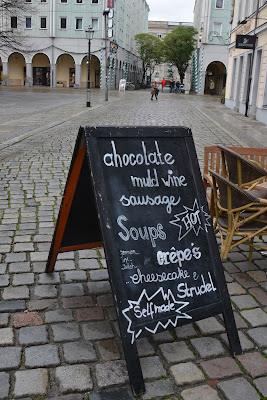 chocolate
muld wine
sausage
HOT
Soups
crêpe's
cheesecake &
Strudel
Selfmade